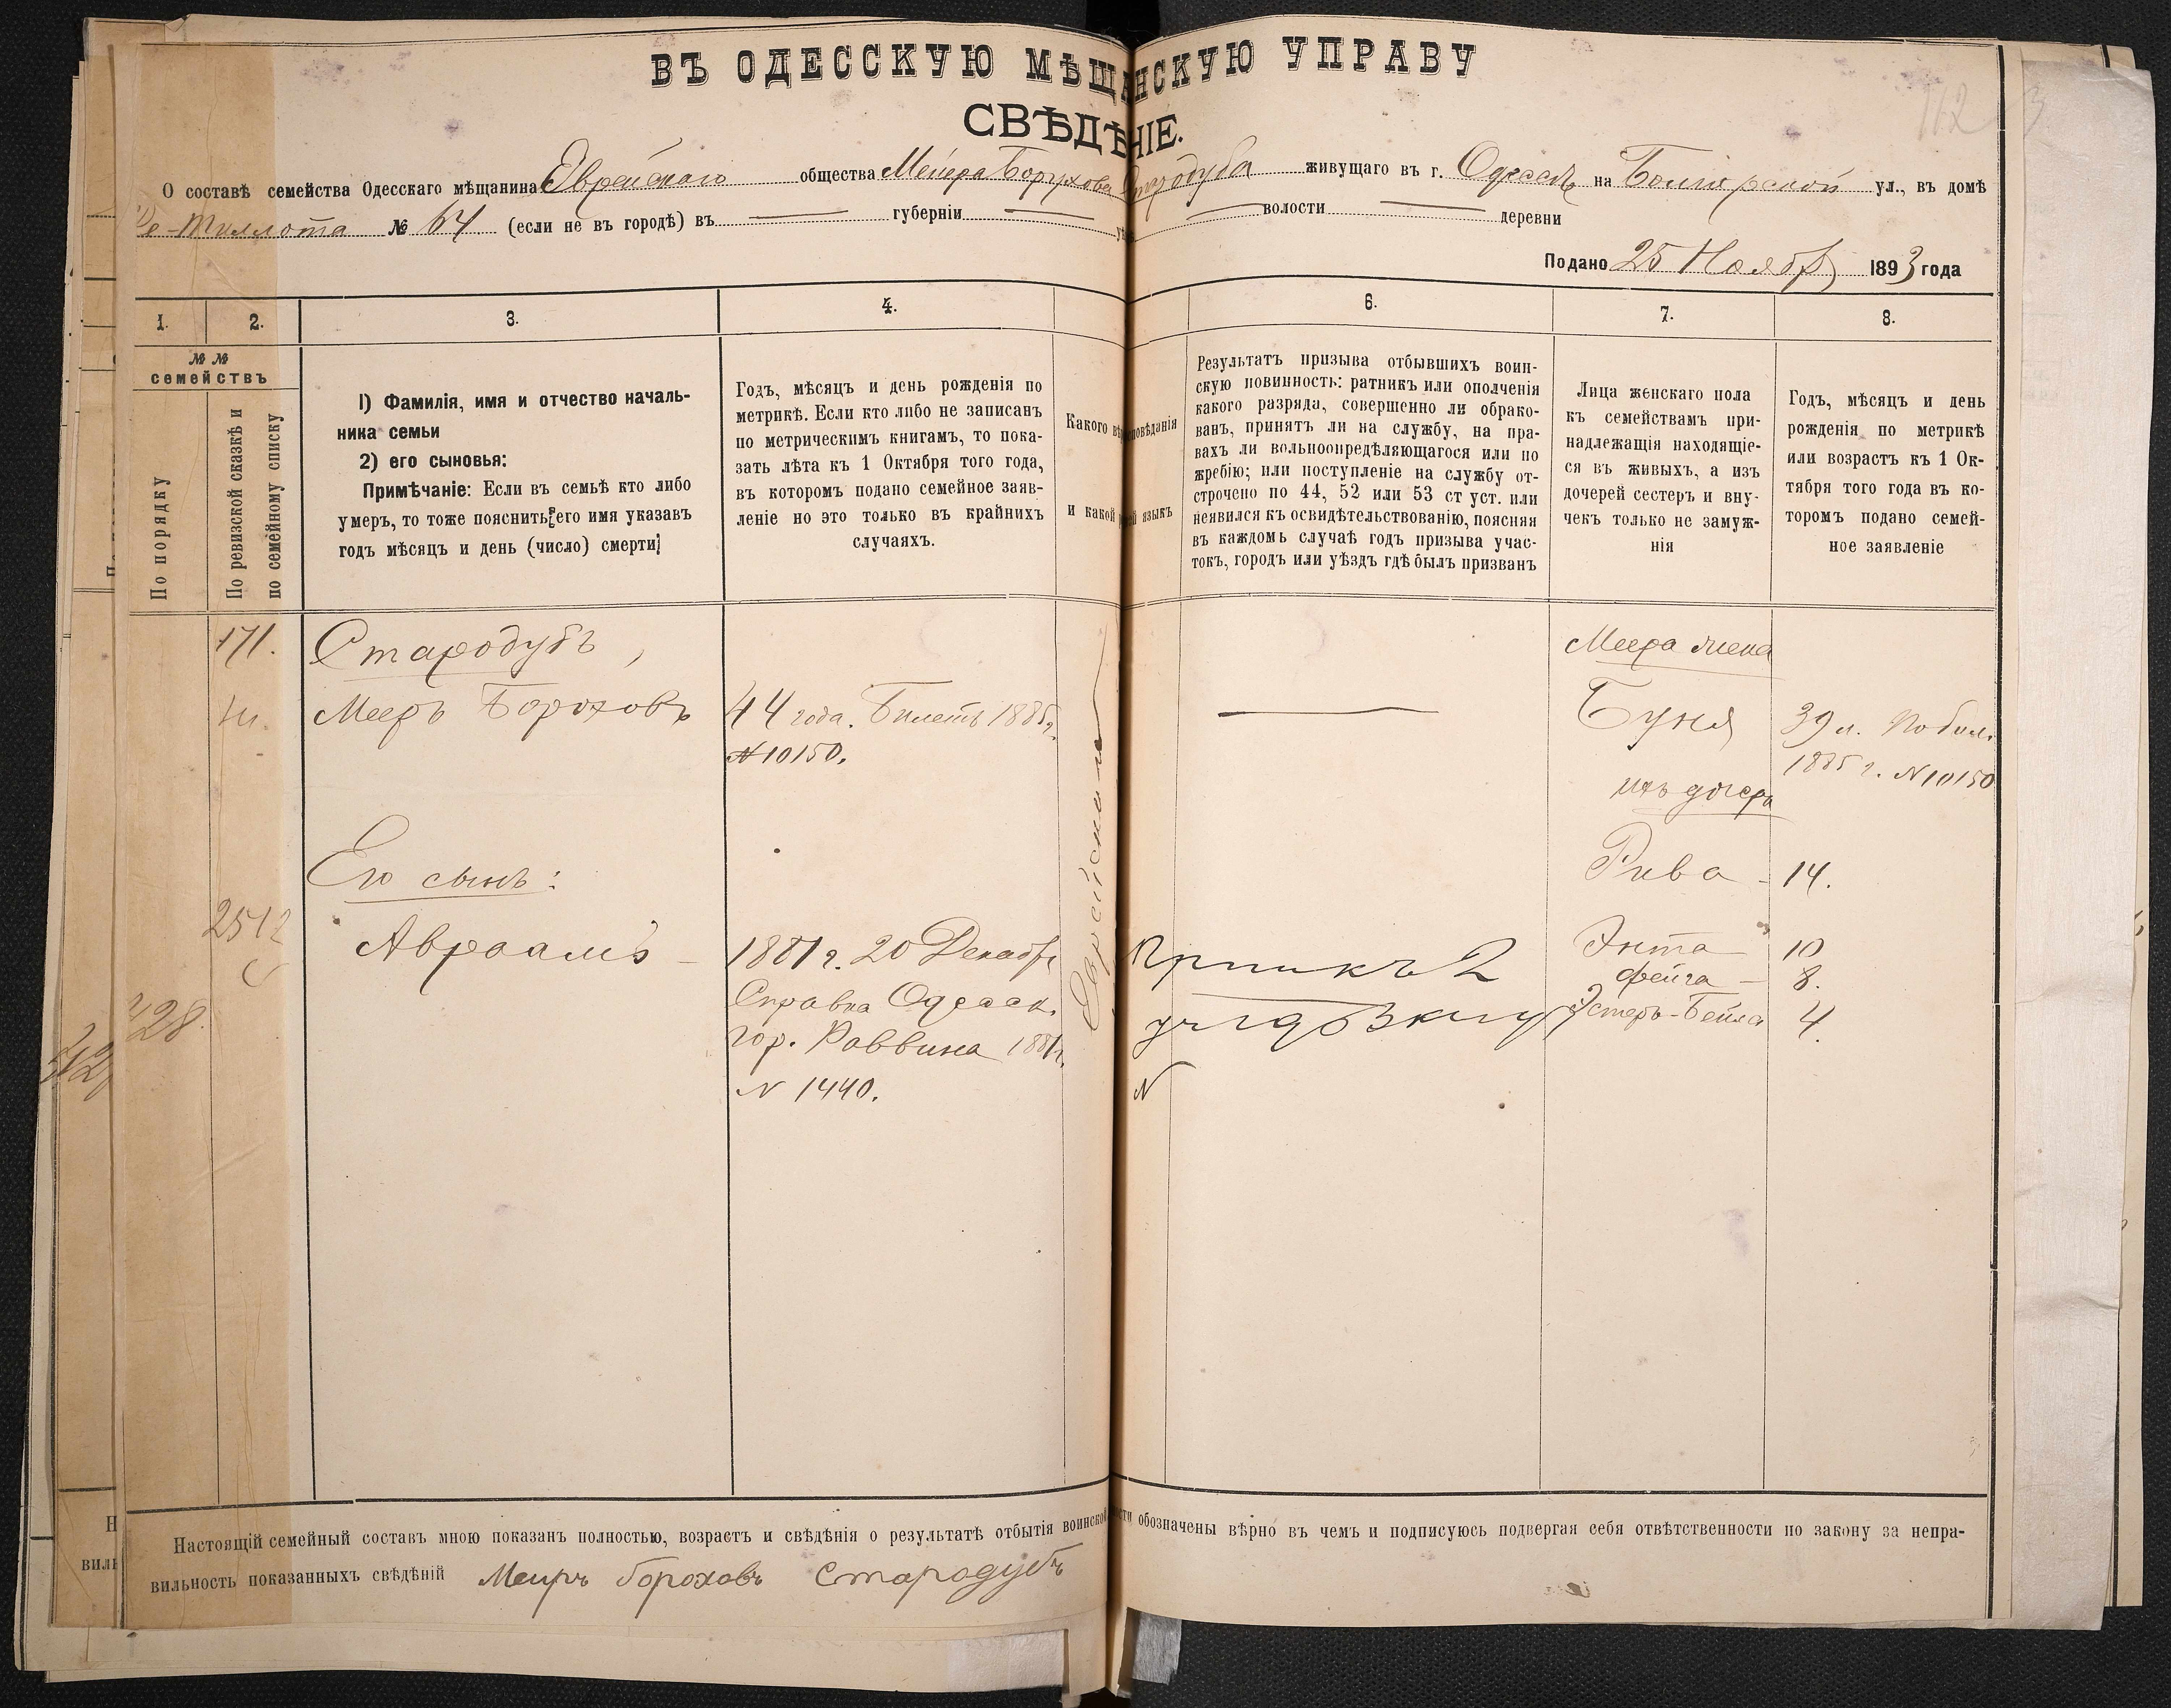 ВЪ ОДЕССКУЮ МѢЩАНСКУЮ УПРАВУ
СВѢДѢНІЕ.
О составѣ семейства Одесскаго мѣщанина Еврейскаго общества Мейера Борухова Стародуба живущаго въ г. Одессѣ на Болгарской ул., въ домѣ
№ 64 (если не въ городѣ) въ губерніи волости деревни
Подано 25 Ноябр 1893 года
1. 2. 3. 4. 6. 7. 8.
№ № семействъ
По порядку
По ревизской сказкѣ и
по семейному списку
1) Фамилія, имя и отчество началь-
ника семьи
2) его сыновья:
Примѣчаніе: Если въ семьѣ кто либо
умеръ, то тоже пояснить его имя указавъ
годъ мѣсяцъ и день (число) смерти
Годъ, мѣсяцъ и день рожденія по
метрикѣ. Если кто либо не записанъ
по метрическимъ книгамъ, то пока-
зать лѣта къ 1 Октября того года,
въ которомъ подано семейное заяв-
леніе но это только въ крайнихъ
случаяхъ.
Какого вѣроисповѣданія
и какой языкъ
Результатъ призыва отбывшихъ воин-
скую повинность: ратникъ или ополченія
какого разряда, совершенно ли обрако-
ванъ, принятъ ли на службу, на пра-
вахъ ли вольноопредѣляющагося или по
жребію; или поступленіе на службу от-
строчено по 44, 52 или 53 ст уст. или
неявился къ освидѣтельствованію, поясняя
въ каждомъ случаѣ годъ призыва учас-
токъ, городъ или уѣздъ гдѣ былъ призванъ
Лица женскаго пола
къ семействамъ при-
надлежащія находящіе-
ся въ живыхъ, а изъ
дочерей сестеръ и вну-
чекъ только не замуж-
нія
Годъ, мѣсяцъ и день
рожденія по метрикѣ
или возрастъ къ 1 Ок-
тября того года въ ко-
торомъ подано семей-
ное заявленіе
171. Стародубъ,
Меера жена
Мееръ Бороховъ 44 года. Билетъ 1885г.
№ 10150.
Буня 39 л. по бил.
1885 г. № 10150
ихъ дочери
Его сынъ:
Рива - 14.
2512
Авраамъ - 1881 г. 20 Декабр
Справка Одесск.
гор. Раввина 1881г.
№ 1440.
Еврейскаго
№
Энта 10
Фейга - 8.
Эстеръ-Бейла 4.
428.
Настоящій семейный составъ мною показанъ полностью, возрастъ и свѣдѣнія о результатѣ отбытія воинской обозначены вѣрно въ чемъ и подписуюсь подвергая себя отвѣтственности по закону за непра-
вильность показанныхъ свѣдѣній Меиръ Бороховъ Стародубъ